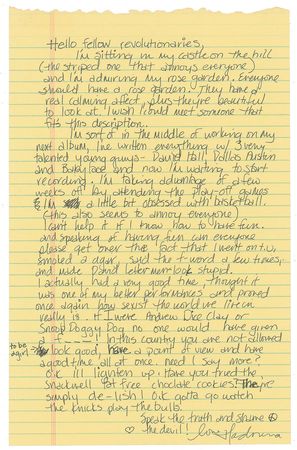 Hello fellow revolutionaries,
I'm sitting in my castle on the hill
(the striped one that annoys everyone)
and I'm admiring my rose garden. Everyone
should have a rose garden. They have a
real calming affect, plus they're beautiful
to look at. I wish I could meet someone that
fits this description.
I'm sort of in the middle of working on my
next album, I've written everything w/ 3 very
talented young guys - David Hall, Dallas Austin
and Babyface and now I'm waiting to start
recording. I'm taking advantage of a few
weeks off by attending the play-off games
& I'm a little bit obsessed with basketball.
(this also seems to annoy everyone)
I can't help it if I know how to have fun.
and speaking of having fun can everyone
please get over the fact that I went on t.v,
smoked a cigar, said the f-word a few times,
and made David Letterman look stupid.
I actually had a very good time, thought it
was one of my better performances and proved
once again how sexist the world we live in
really is. If I were Andrew Dice Clay or
Snoop Doggy Dog no one would have given
a f----!! In this country you are not allowed
to be a girl, look good, have a point of view and have
a good time all at once. need I say more?
O.k. ill lighten up. Have you tried the
Snackwell fat free choclate cookies? They're
simply de-lish! O.k. gotta go watch
the knicks play the bulls.
Speak the truth and shame
the devil! love Madonna